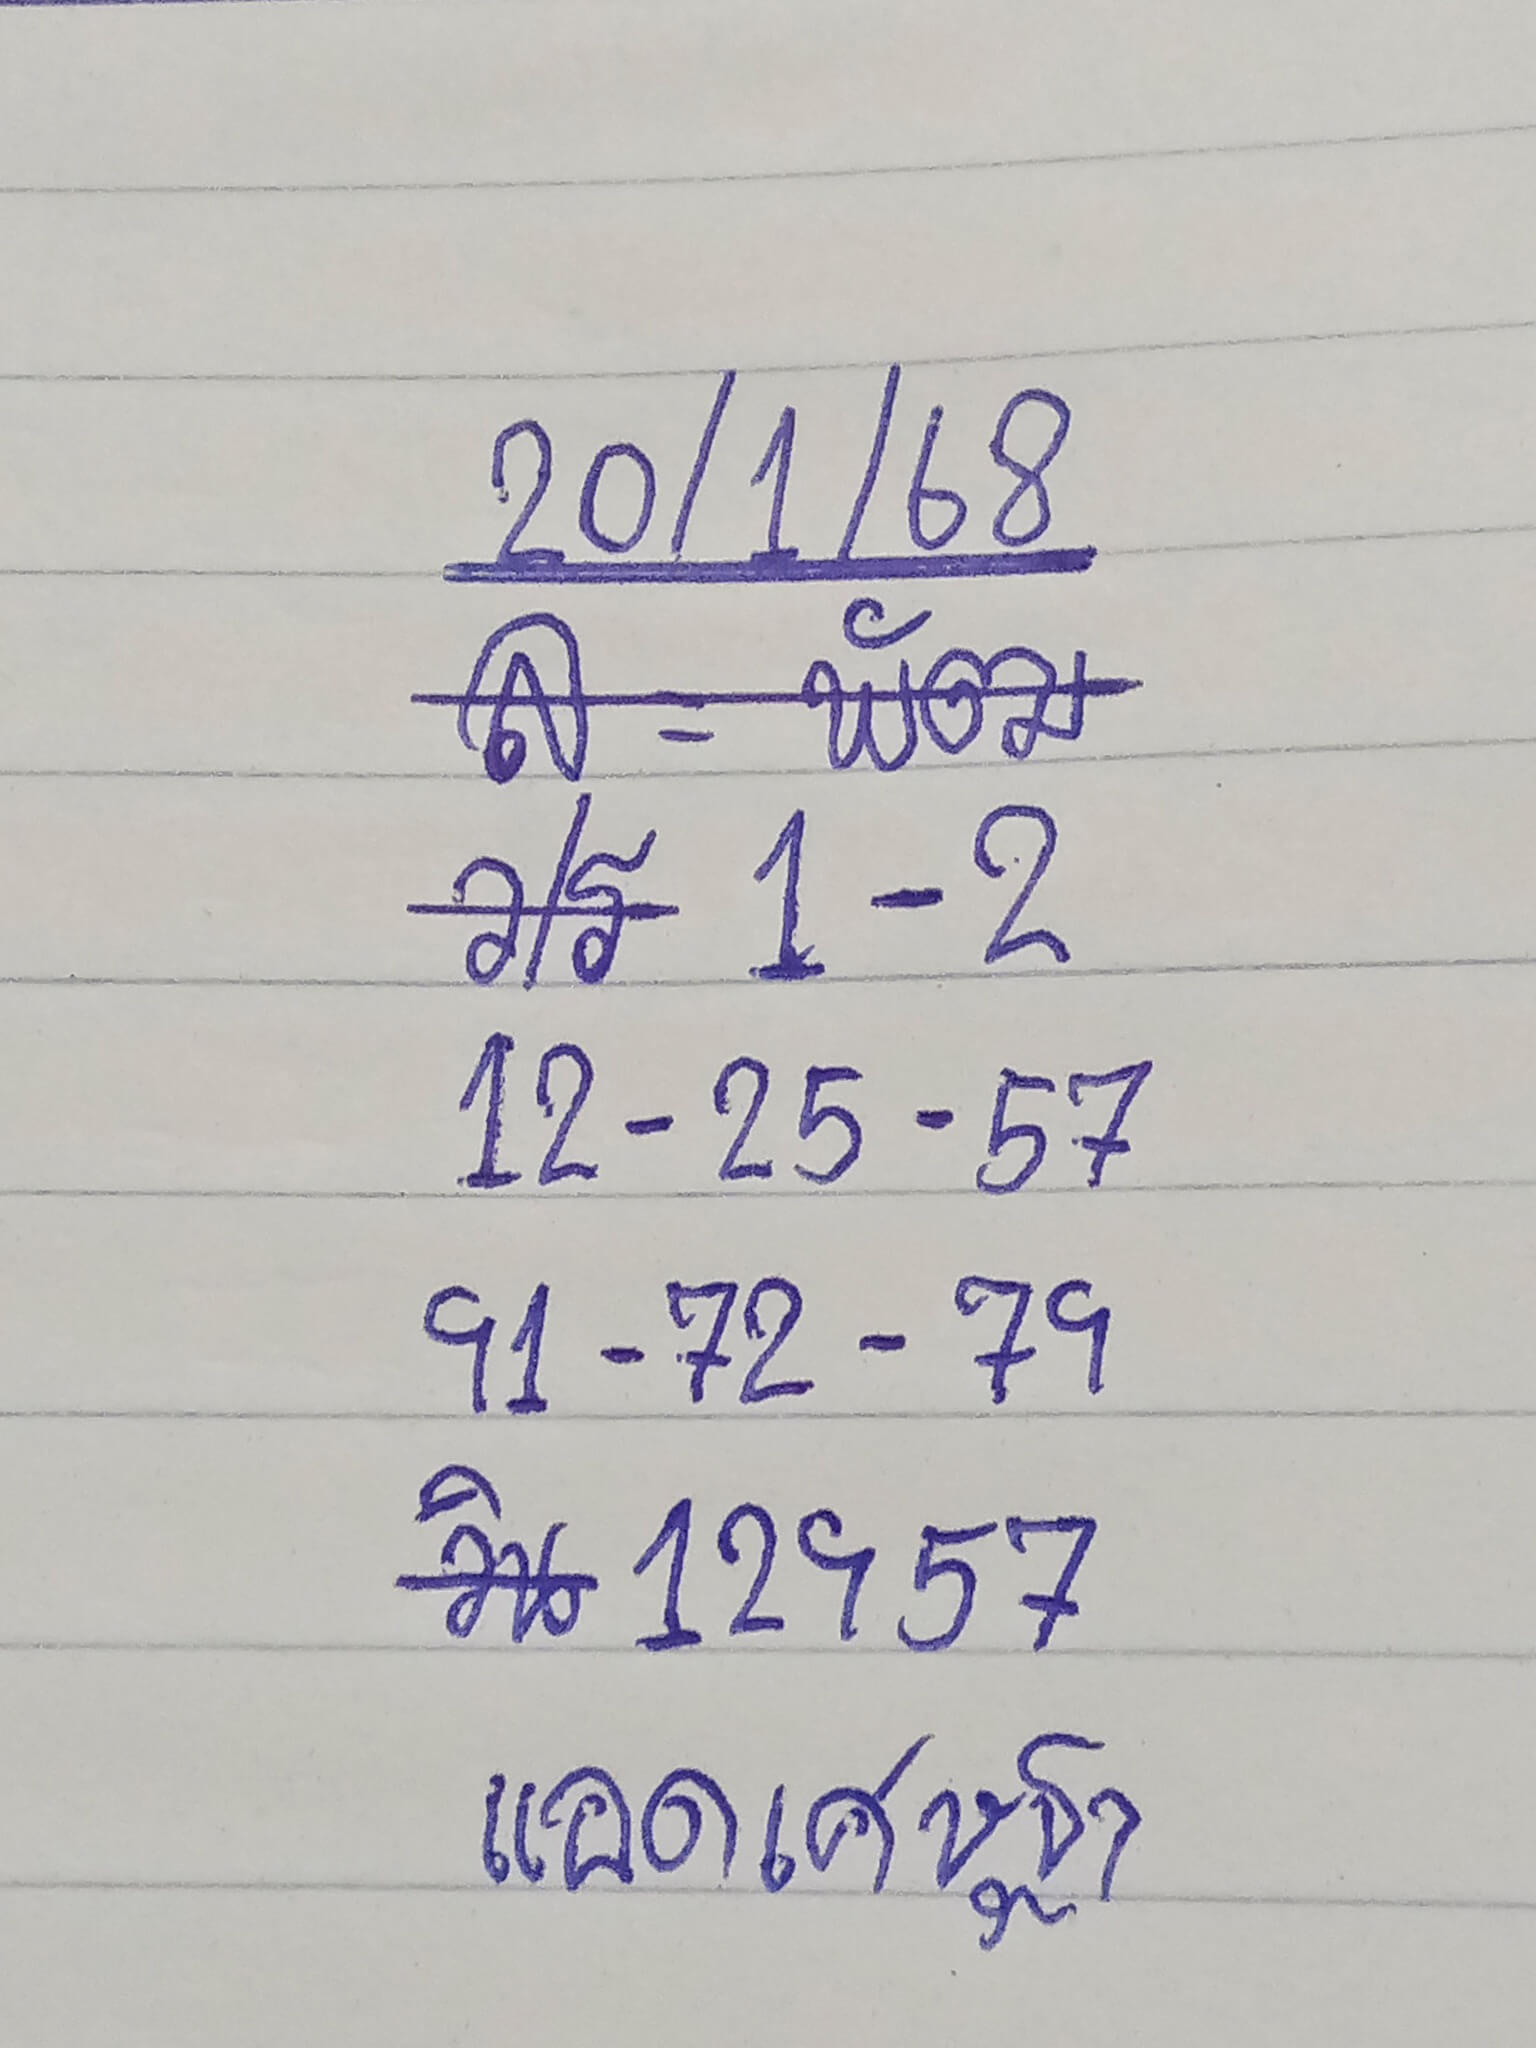 20/1/68
ด = พัวม
ว/ร 1 - 2
12 - 25 - 57
91 - 72 - 79
วิน 12957
แอดเศษฐา